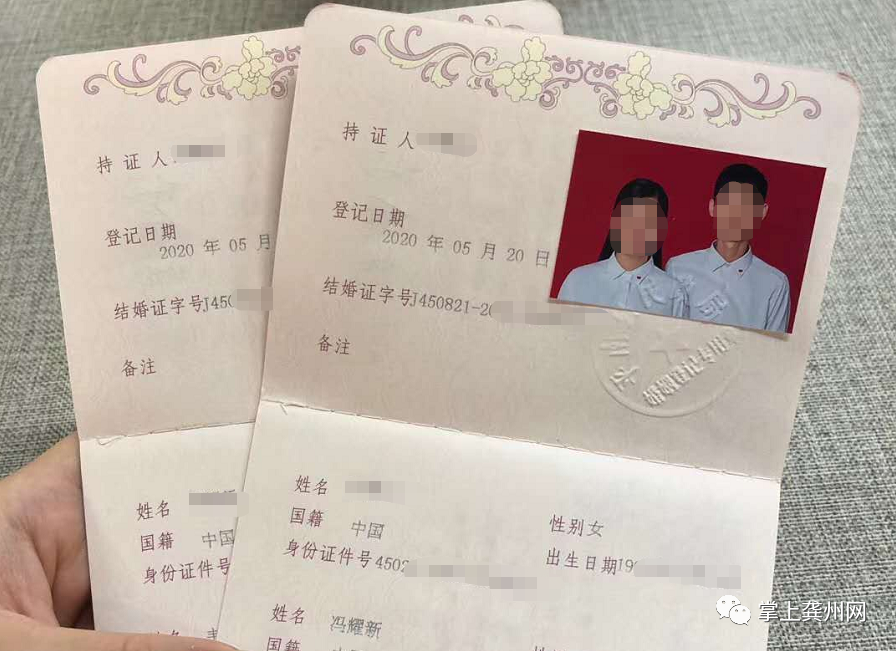 持证人
登记日期
2020 年 05 月
结婚证字号J450
备注
姓名
国籍 中国
身份证件号
持证人
登记日期
2020 年 05 月 20 日
结婚证字号J450821-20
备注
婚姻登记专用
姓名
性别女
国籍 中国
出生日期19
身份证件号4502
姓名 冯耀新
国籍
掌上龚州网